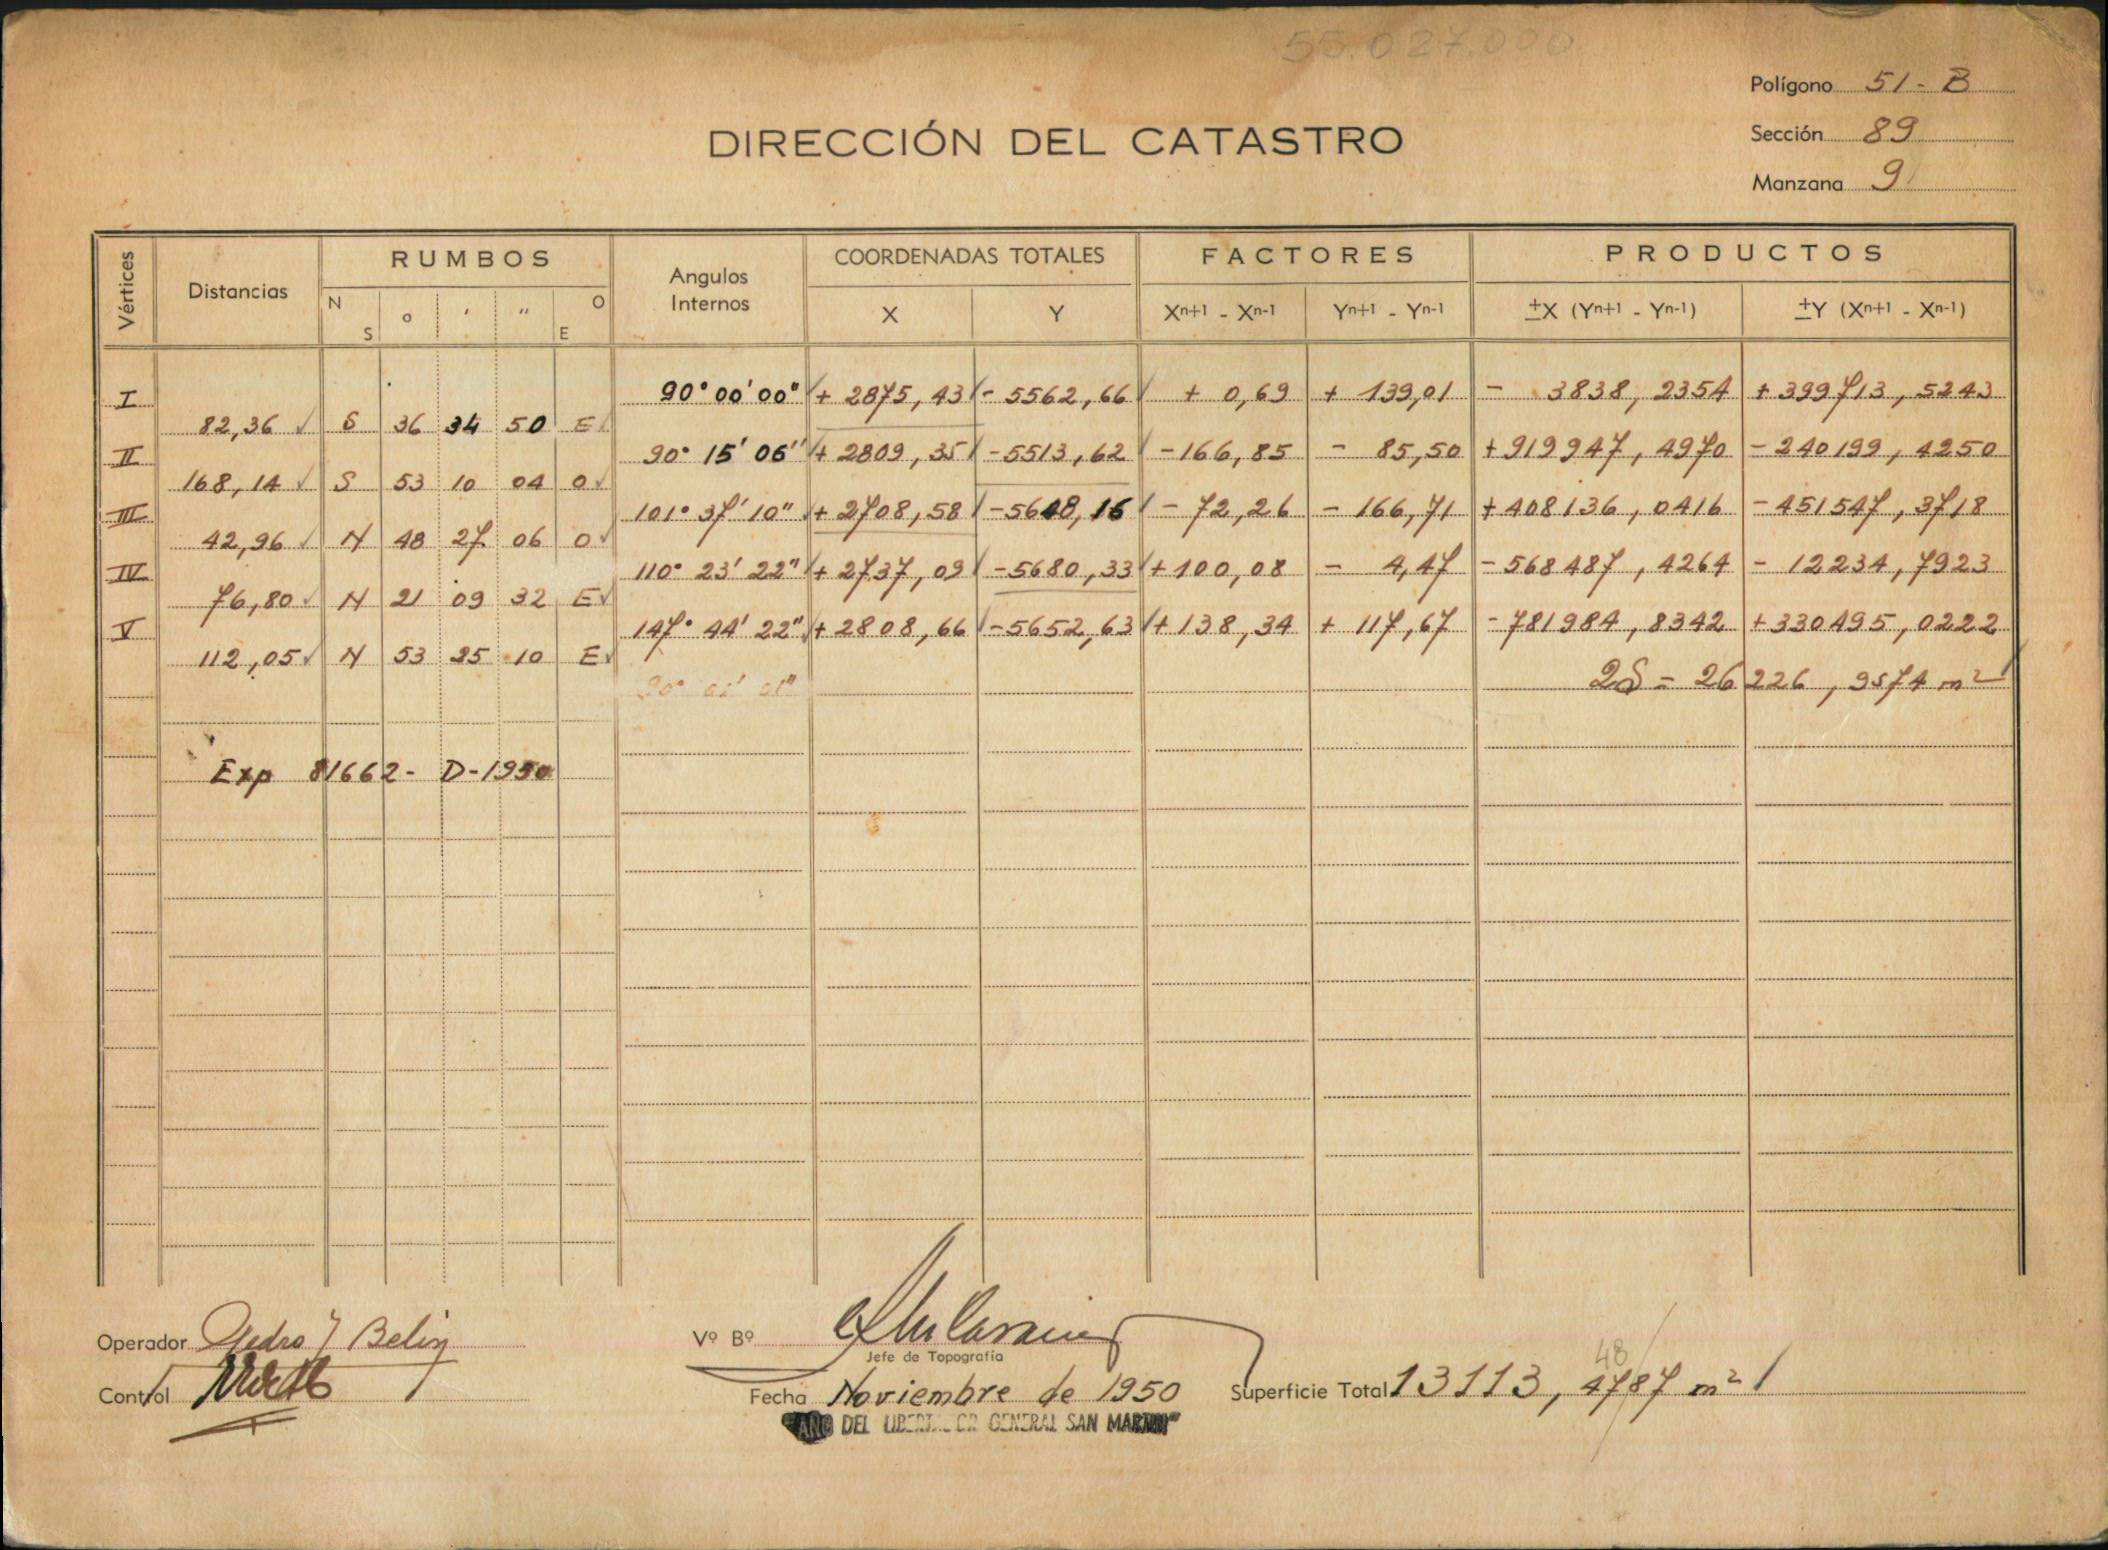 55.027.000
Polígono 51-B
DIRECCIÓN DEL CATASTRO
Sección 89
Manzana 9
Vértices Distancias RUMBOS Angulos Internos COORDENADAS TOTALES FACTORES PRODUCTOS
N S ° ' " O E X Y Xn+1 - Xn-1 Yn+1 - Yn-1 ±X (Yn+1 - Yn-1) ±Y (Xn+1 - Xn-1)
I 90° 00' 00" + 2875,43 - 5562,66 + 0,69 + 139,01 - 3838,2354 + 399713,5243
82,36 S 36 34 50 E
II 90° 15' 06" + 2809,35 - 5513,62 - 166,85 - 85,50 + 919947,4970 - 240199,4250
168,14 S 53 10 04 O
III 101° 37' 10" + 2708,58 - 5648,16 - 72,26 - 166,71 + 408136,0416 - 451547,3718
42,96 N 48 27 06 O
IV 110° 23' 22" + 2737,09 - 5680,33 + 100,08 - 4,47 - 568487,4264 - 12234,7923
76,80 N 21 09 32 E
V 147° 44' 22" + 2808,66 - 5652,63 + 138,34 + 117,67 - 781984,8342 + 330495,0222
112,05 N 53 25 10 E
2S = 26226,9574 m²
Exp 81662- D-1950
Operador Pedro J Belin
Vº Bº
Jefe de Topografía
Control
Fecha Noviembre de 1950
Superficie Total 13113,4787 m²
48
"AÑO DEL LIBERTADOR GENERAL SAN MARTIN"